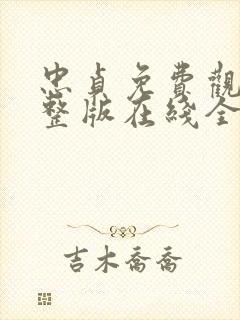 忠貞免費觀
整版在綫全
吉木喬喬